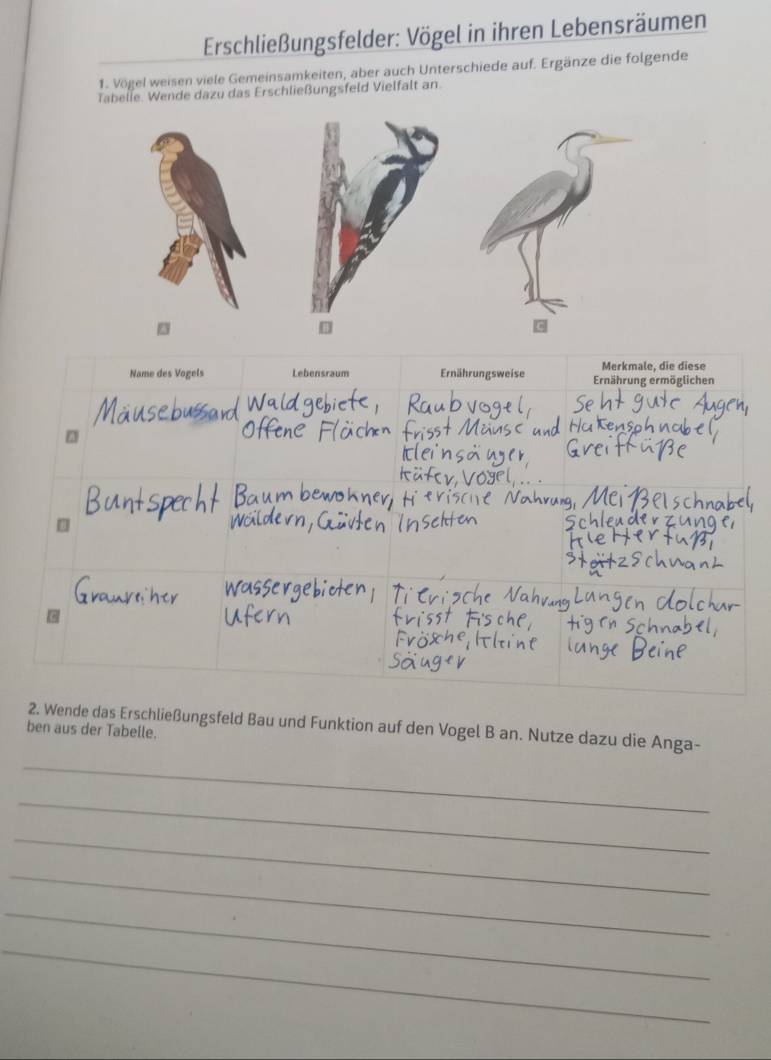 Erschließungsfelder: Vögel in ihren Lebensräumen
1. Vögel weisen viele Gemeinsamkeiten, aber auch Unterschiede auf. Ergänze die folgende
Tabelle. Wende dazu das Erschließungsfeld Vielfalt an.
A
B
C
Name des Vogels
Lebensraum
Ernährungsweise
Merkmale, die diese
Ernährung ermöglichen
A
Mäusebussard
Waldgebiete,
Offene Flächen
Raubvogel,
frisst Mäuse und
kleinsäuger,
Käfer, Vögel,...
Seht gute Augen,
Hakenschnabel,
Greiffüße
B
Buntspecht
Baumbewohner,
wäldern, Gärten
tierische Nahrung,
Insekten
Meißelschnabel,
Schleuderzunge,
Kletterfuß,
Stützschwanz
C
Graureiher
Wassergebieten,
Ufern
Tierische Nahrung
frisst Fische,
Frösche, kleine
Säuger
Langen dolchar-
tigen Schnabel,
lange Beine
2. Wende das Erschließungsfeld Bau und Funktion auf den Vogel B an. Nutze dazu die Anga-
ben aus der Tabelle.